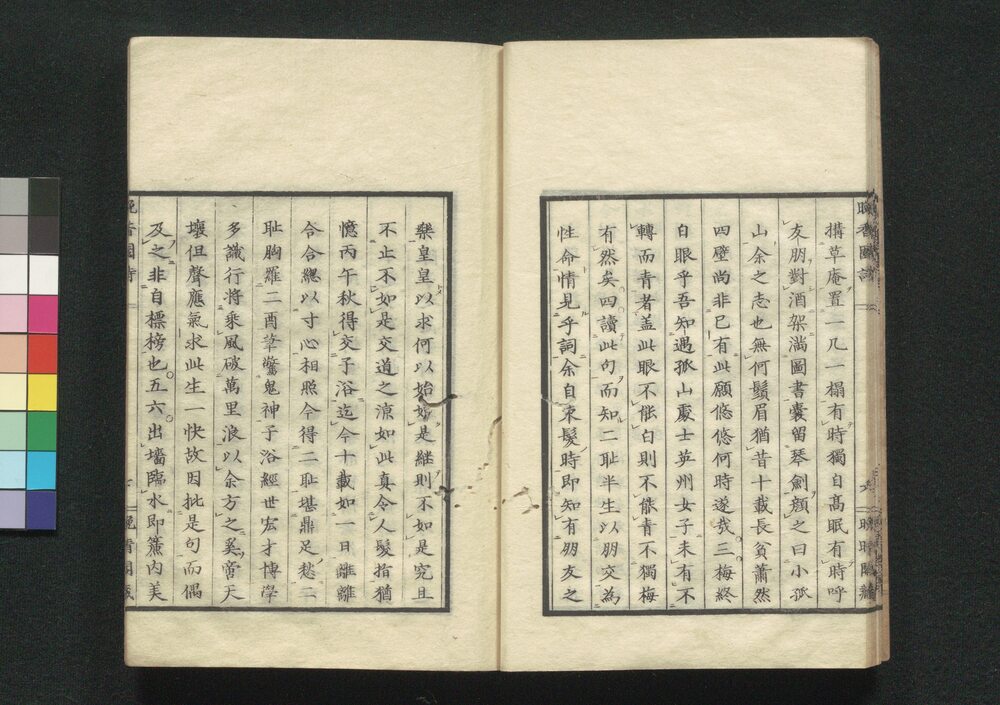 搆草庵置一几一榻有時獨自高眠有時呼
友朋對酒架滿圖書囊留琴劍顏之曰小孤
山余之志也無何鬚眉猶昔十載長貧蕭然
四壁尚非已有此願悠悠何時遂哉三梅終
白眼乎吾知遇孤山處士英州女子未有不
轉而青者蓋此眼不能白則不能青不獨梅
有然矣四讀此句而知二耻半生以朋交為
性命情見乎詞余自束髮時即知有朋友之
樂皇皇以求何以始如是継則不如是究且
不止不如是交道之涼如此真令人髮指猶
憶丙午秋得交子浴迄今十載如一日離離
合合緫以寸心相照今得二耻堪鼎足愁二
耻胸羅二酉筆驚鬼神子浴經世宏才博學
多識行將乘風破萬里浪以余方之奚啻天
壤但聲應氣求此生一快故因批是句而偶
及之非自標榜也五六出墻臨水即簷内美